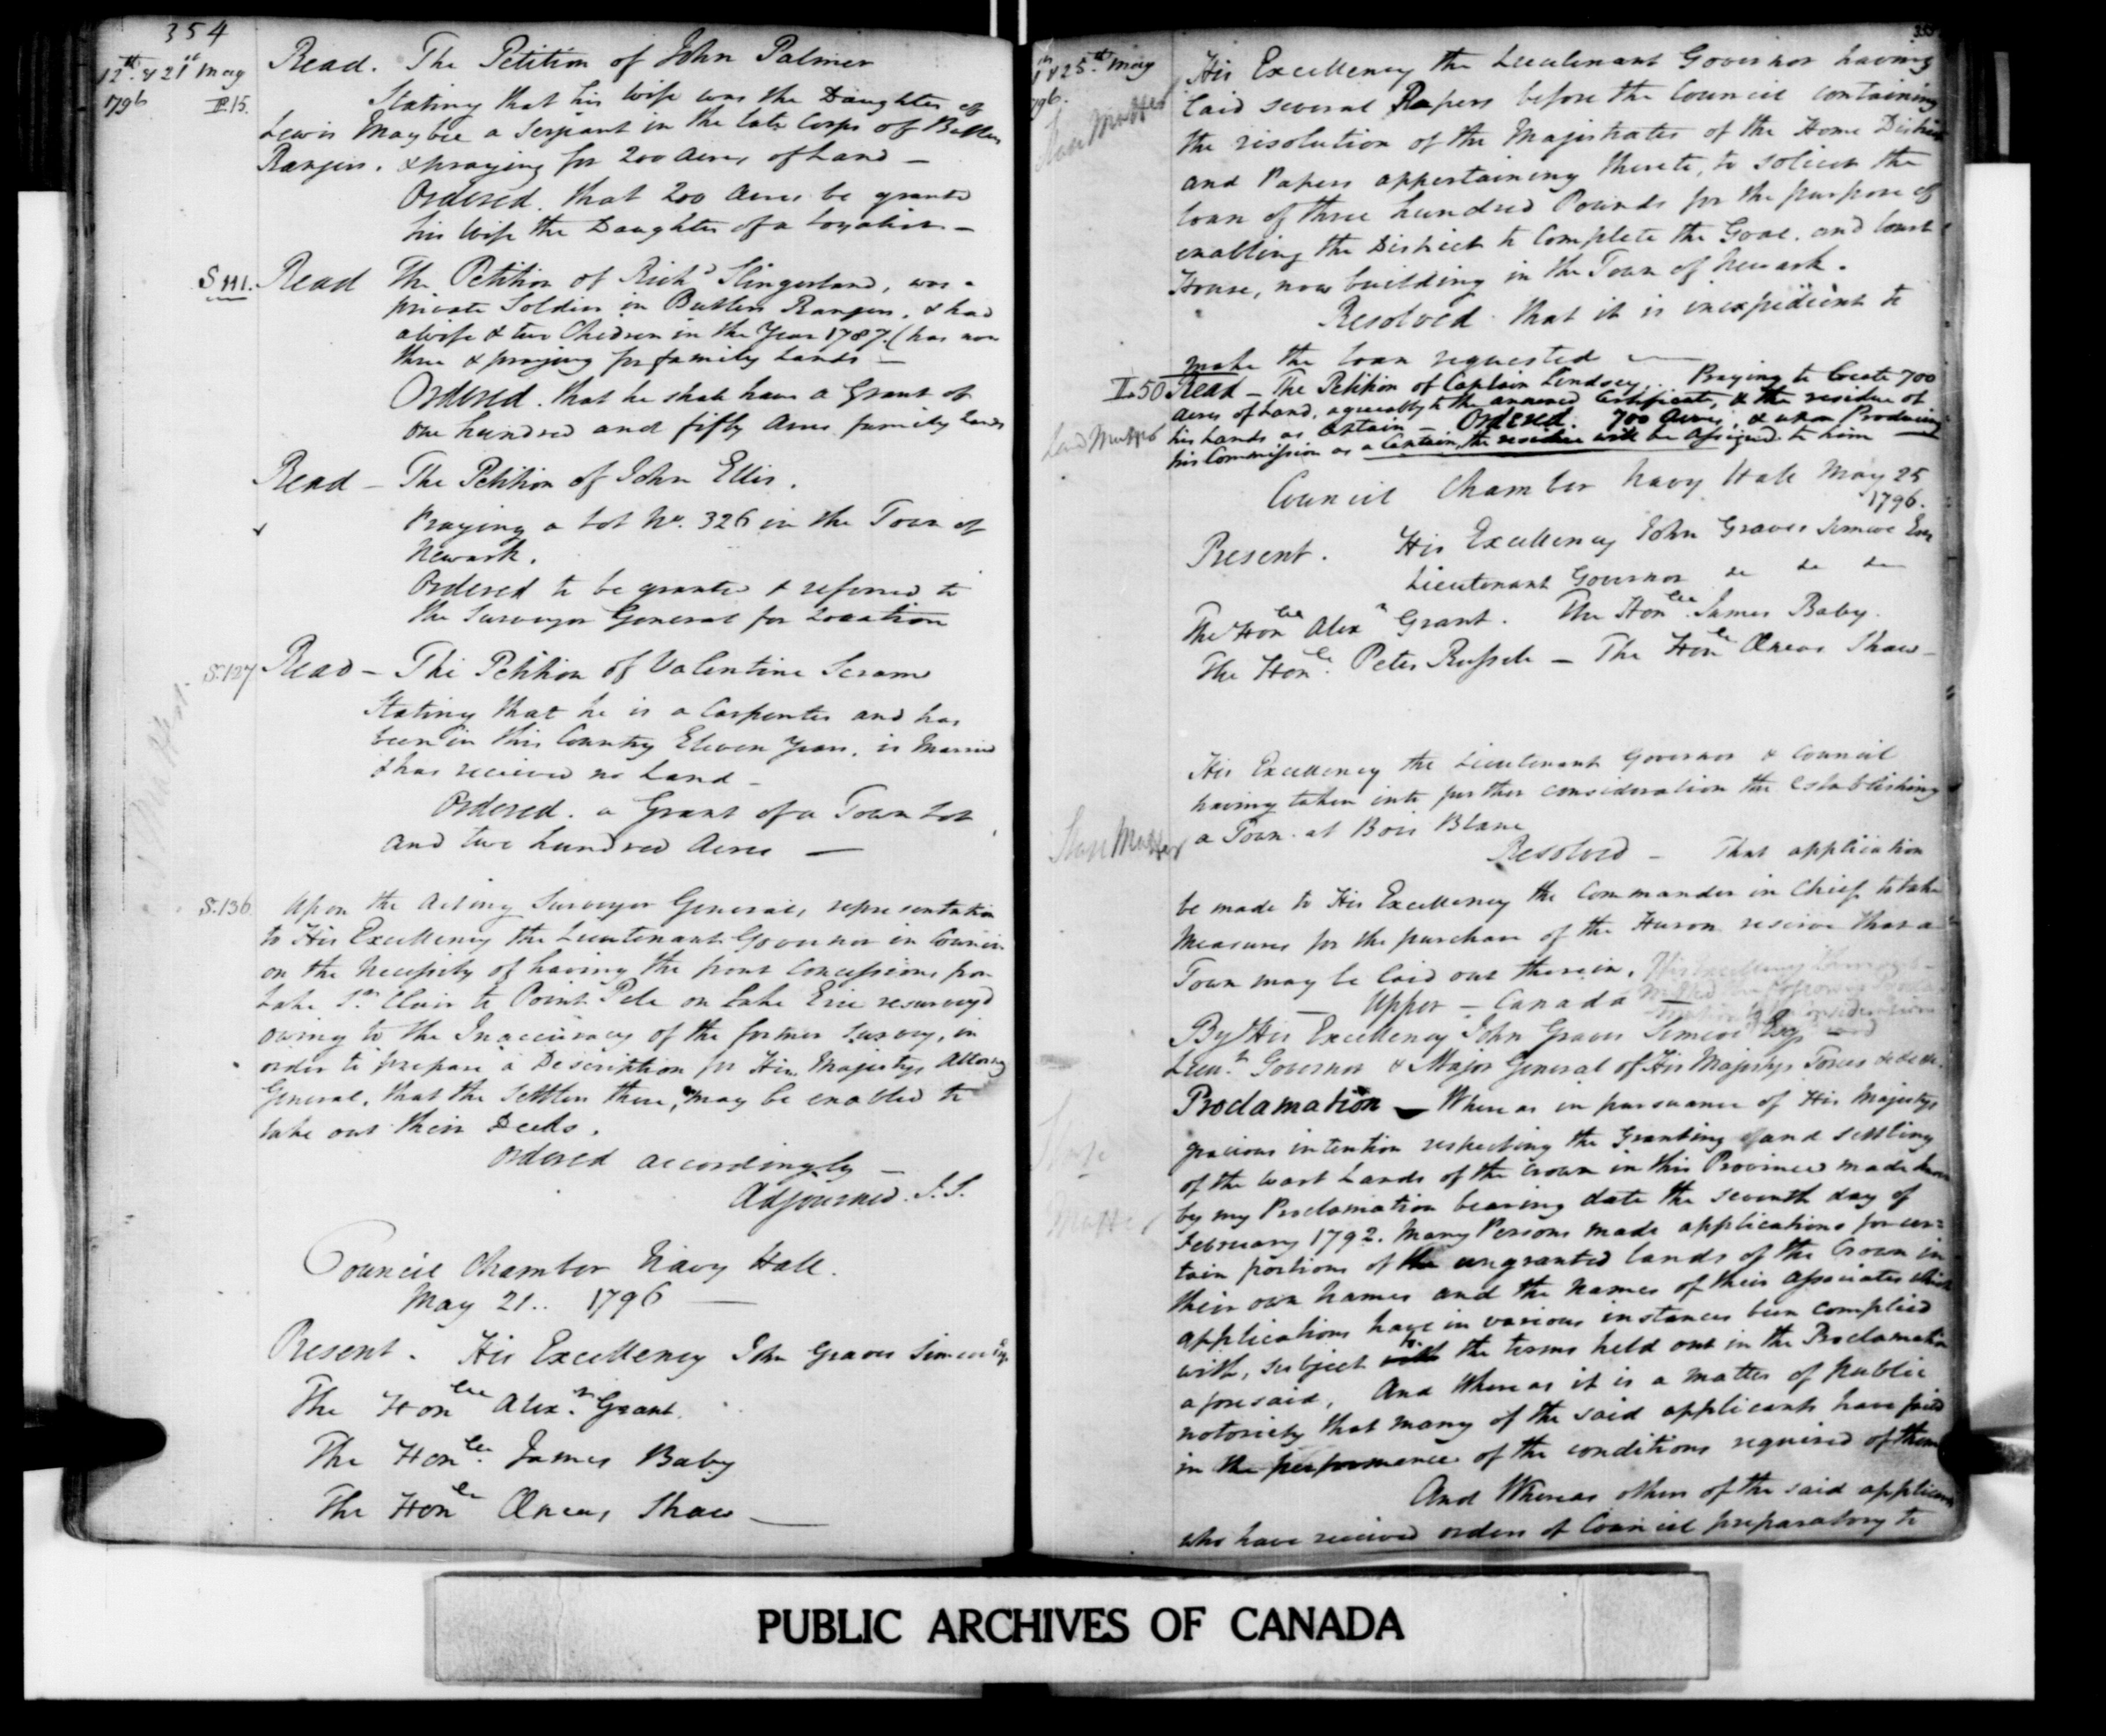 354
12th & 21st May
1796
P.15.
Read. The Petition of John Palmer
Stating that his Wife was the Daughter of
Lewis Maybee a Serjeant in the late Corps of Butlers
Rangers. & praying for 200 Acres of Land —
Ordered. that 200 Acres be granted
his Wife the Daughter of a Loyalist —
S 111. Read The Petition of Richd Slingerland, was a
private Soldier in Butlers Rangers, & had
a Wife & two Children in the Year 1787. (has now
three & praying for family Lands —
Ordered. that he shall have a Grant of
one hundred and fifty Acres family Lands
Read — The Petition of John Ellis.
Praying a Lot No. 326 in the Town of
Newark.
Ordered to be granted & referred to
the Surveyor General for Location
S.127 Read — The Petition of Valentine Scram
Stating that he is a Carpenter and has
been in this Country Eleven Years, is Married
& has received no Land —
Ordered. a Grant of a Town Lot
and two hundred Acres —
S.136 Upon the Acting Surveyor Generals representation
to His Excellency the Lieutenant Governor in Council
on the Necessity of having the front Concessions from
Lake St. Clair to Point Pele on Lake Erie resurveyd
owing to the Inaccuracy of the former Survey, in
order to prepare a Description for His Majestys Attorney
General, that the Settlers there, may be enabled to
take out their Deeds.
Ordered accordingly —
Adjourned. J.S.
Council Chamber Navy Hall.
May 21.. 1796 —
Present. His Excellency John Graves Simcoe Esqr
The Honble Alexr Grant.
The Honble James Baby
The Honble Æneas Shaw —
& 25th May
State Matter
His Excellency the Lieutenant Governor having
laid several Papers before the Council containing
the resolution of the Magistrates of the Home District
and Papers appertaining thereto, to solicit the
loan of three hundred Pounds for the purpose of
enabling the District to Complete the Goal. and Court
House, now building in the Town of Newark.
Resolved that it is inexpedient to
make the loan requested —
L.50 Read — The Petition of Captain Lindsey.. Praying to locate 700
Acres of Land, agreeably to the annexed Certificate, & the residue of
Land Matter his Lands as Captain — Ordered. 700 Acres; & upon Producing
his Commission as a Captain, the residue will be Assigned to him —
Council Chamber Navy Hall May 25
1796.
Present. His Excellency John Graves Simcoe Esqr
Lieutenant Governor &c &c &c
The Honble Alexr Grant. The Honble James Baby.
The Honble Peter Russell — The Honble Æneas Shaw —
His Excellency the Lieutenant Governor & Council
having taken into further consideration the establishing
State Matter a Town at Bois Blanc
Resolved — That application
be made to His Excellency the Commander in Chief to take
Measures for the purchase of the Huron reserve that a
Town may be laid out therein. His Excellency
— Upper — Canada —
By His Excellency John Graves Simcoe Esqr
Lieut. Governor & Major General of His Majestys Forces &c &c &c.
Proclamation — Whereas in pursuance of His Majestys
State gracious intention respecting the Granting and settling
of the wast Lands of the Crown in this Province made known
Matter by my Proclamation bearing date the seventh day of
February 1792. Many Persons made applications for cer=
tain portions of the ungranted lands of the Crown in
their own Names and the Names of their Associates which
applications have in various instances been complied
with, subject to the terms held out in the Proclamation
aforesaid, And Whereas it is a matter of public
notoriety that many of the said applicants have failed
in the performance of the conditions required of them
And Whereas others of the said applicants
who have received orders of Council preparatory to
PUBLIC ARCHIVES OF CANADA